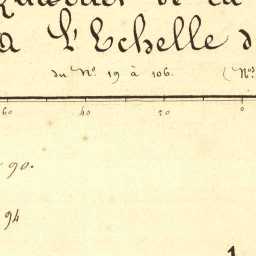 de la
a l'Echelle d
du Nº 19 à 106. (Nos
60 40 20 0
90.
94